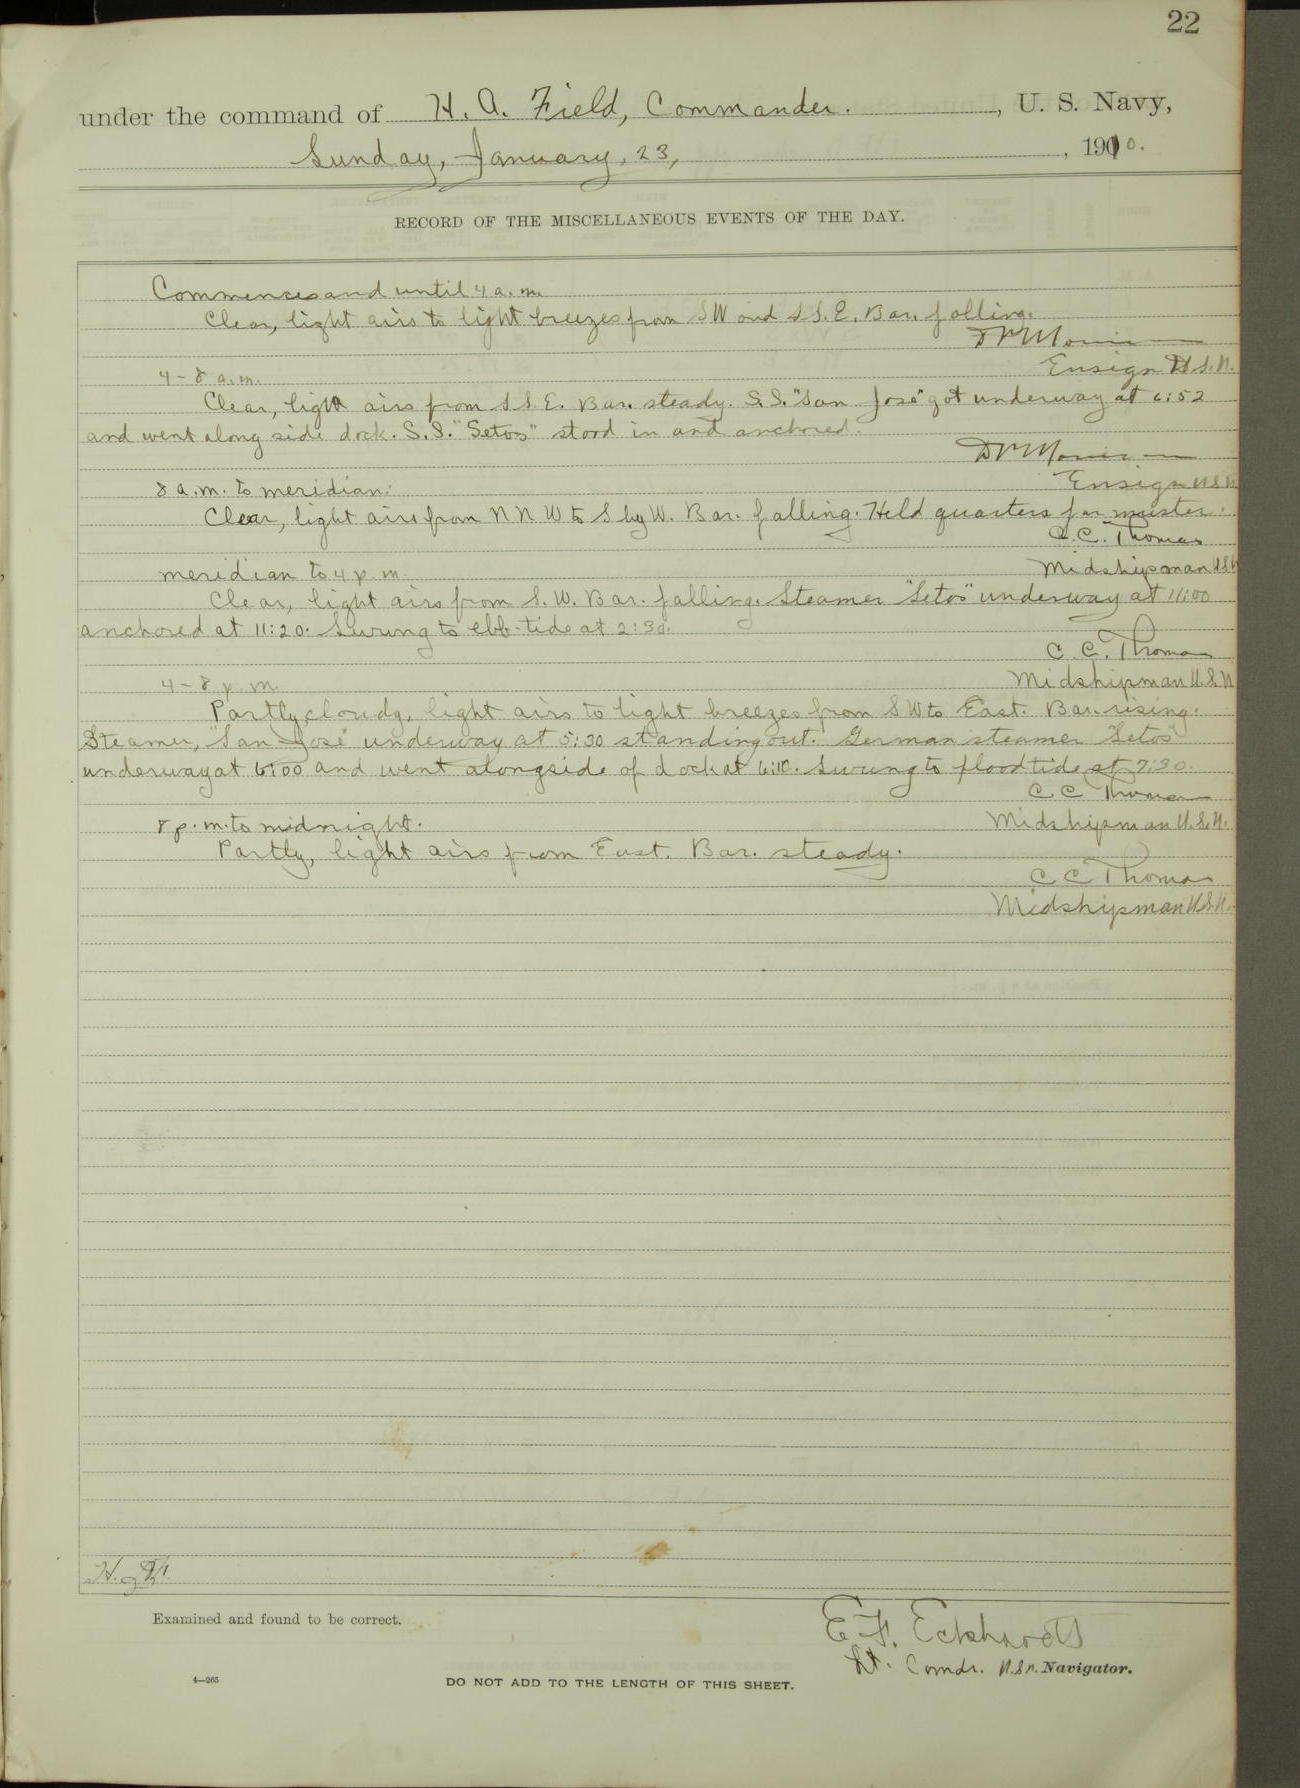 22
under the command of H. A. Field, Commander. , U. S. Navy,
Sunday, January, 23, , 1910.
RECORD OF THE MISCELLANEOUS EVENTS OF THE DAY.
Commences and until 4 a. m.
Clear, light airs to light breezes from SW and SS.E. Bar. falling.
Ensign U.S.N.
4 - 8 a.m.
Clear, light airs from S S. E. Bar. steady. S.S. "San José" got underway at 6:52
and went along side dock. S.S. "Setos" stood in and anchored.
Ensign U.S.N.
8 a.m. to meridian:
Clear, light airs from N N W to S by W. Bar. falling. Held quarters for muster.
C. C. Thomas
Midshipman U.S.N.
meridian to 4 p. m.
Clear, light airs from S. W. Bar. falling. Steamer "Setos" underway at 11:00
anchored at 11:20. Swung to ebb-tide at 2:30.
C. C. Thomas
Midshipman U.S.N
4 - 8 p. m.
Partly cloudy, light airs to light breezes from SW to East. Bar. rising.
Steamer, "San José" underway at 5:30 standing out. German steamer "Setos"
underway at 6:00 and went alongside of dock at 6:10. Swung to flood tide at 7:30.
C C Thomas
Midshipman U.S.N.
8 p. m. to midnight.
Partly, light airs from East. Bar. steady.
C C Thomas
Midshipman U.S.N.
Examined and found to be correct.
E. F. Eckhardt
Lt. Comdr. U.S.N. Navigator.
4—265
DO NOT ADD TO THE LENGTH OF THIS SHEET.